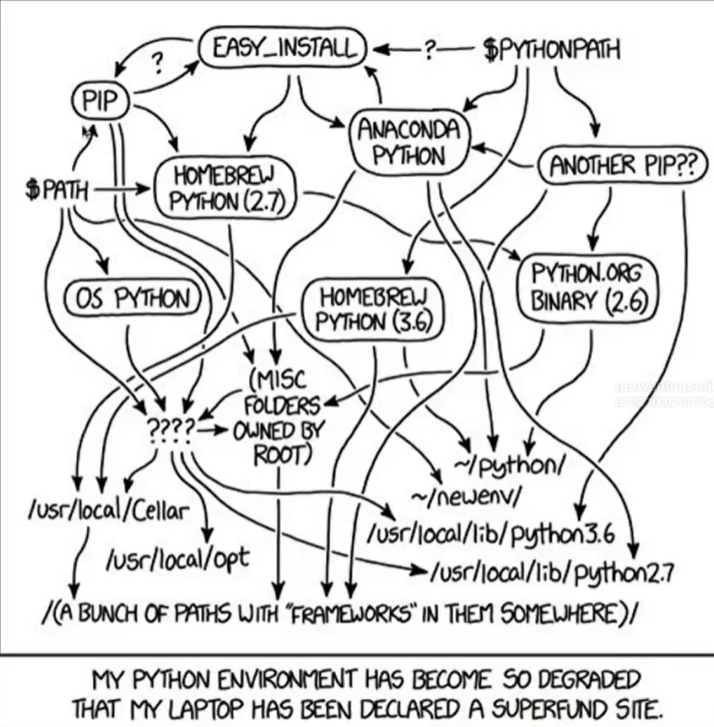 EASY_INSTALL
?
$PYTHONPATH
?
PIP
ANACONDA
PYTHON
ANOTHER PIP??
HOMEBREW
PYTHON (2.7)
$PATH
PYTHON.ORG
BINARY (2.6)
OS PYTHON
HOMEBREW
PYTHON (3.6)
(MISC
FOLDERS
OWNED BY
ROOT)
????
~/python/
~/newenv/
/usr/local/Cellar
/usr/local/lib/python3.6
/usr/local/opt
/usr/local/lib/python2.7
/(A BUNCH OF PATHS WITH "FRAMEWORKS" IN THEM SOMEWHERE)/
MY PYTHON ENVIRONMENT HAS BECOME SO DEGRADED
THAT MY LAPTOP HAS BEEN DECLARED A SUPERFUND SITE.